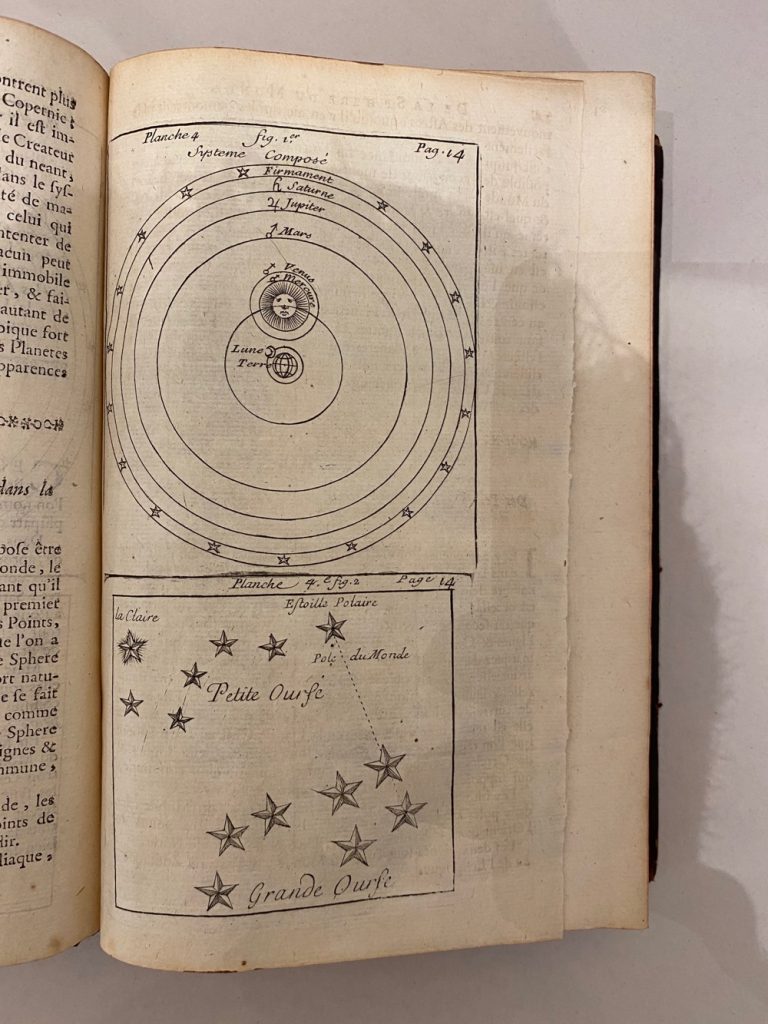 ontrent plus
Copernic;
r il est im-
e Createur
du neant,
dans le sys-
té de ma-
celui qui
ntenter de
acun peut
immobile
er, & fai-
autant de
pique fort
s Planetes
pparences
dans la
pose être
onde, le
ant qu'il
premier
s Points,
e l'on a
e Sphere
ort natu-
e se fait
comme
Sphere
ignes &
mmune,
de, les
oints de
dir.
diaque,
Planche 4 fig. 1.er Pag. 14
Systeme Composé
Firmament
♄ Saturne
♃ Jupiter
♂ Mars
♀ Venus
☿ Mercure
Lune
Terre
Planche 4.e fig. 2 Page 14
la Claire
Estoille Polaire
Pole du Monde
Petite Ourse
Grande Ourse